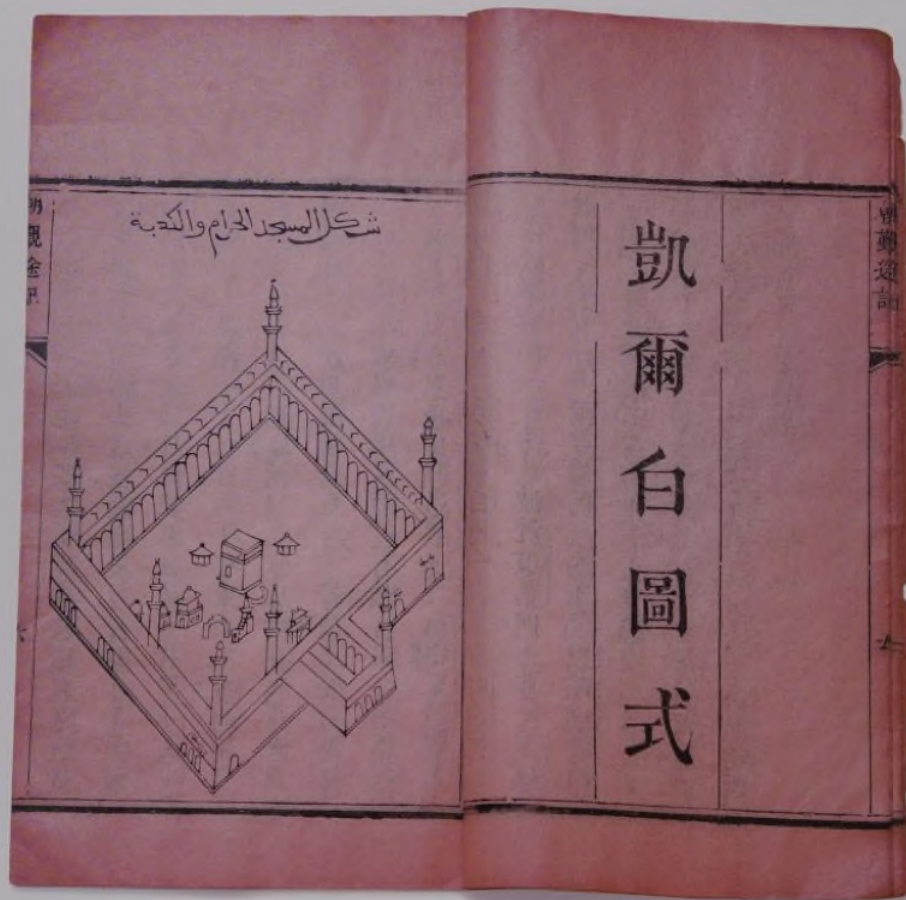 朝覲途記
凱爾白圖式
شكل المسجد الحرام والكعبة
朝覲途記